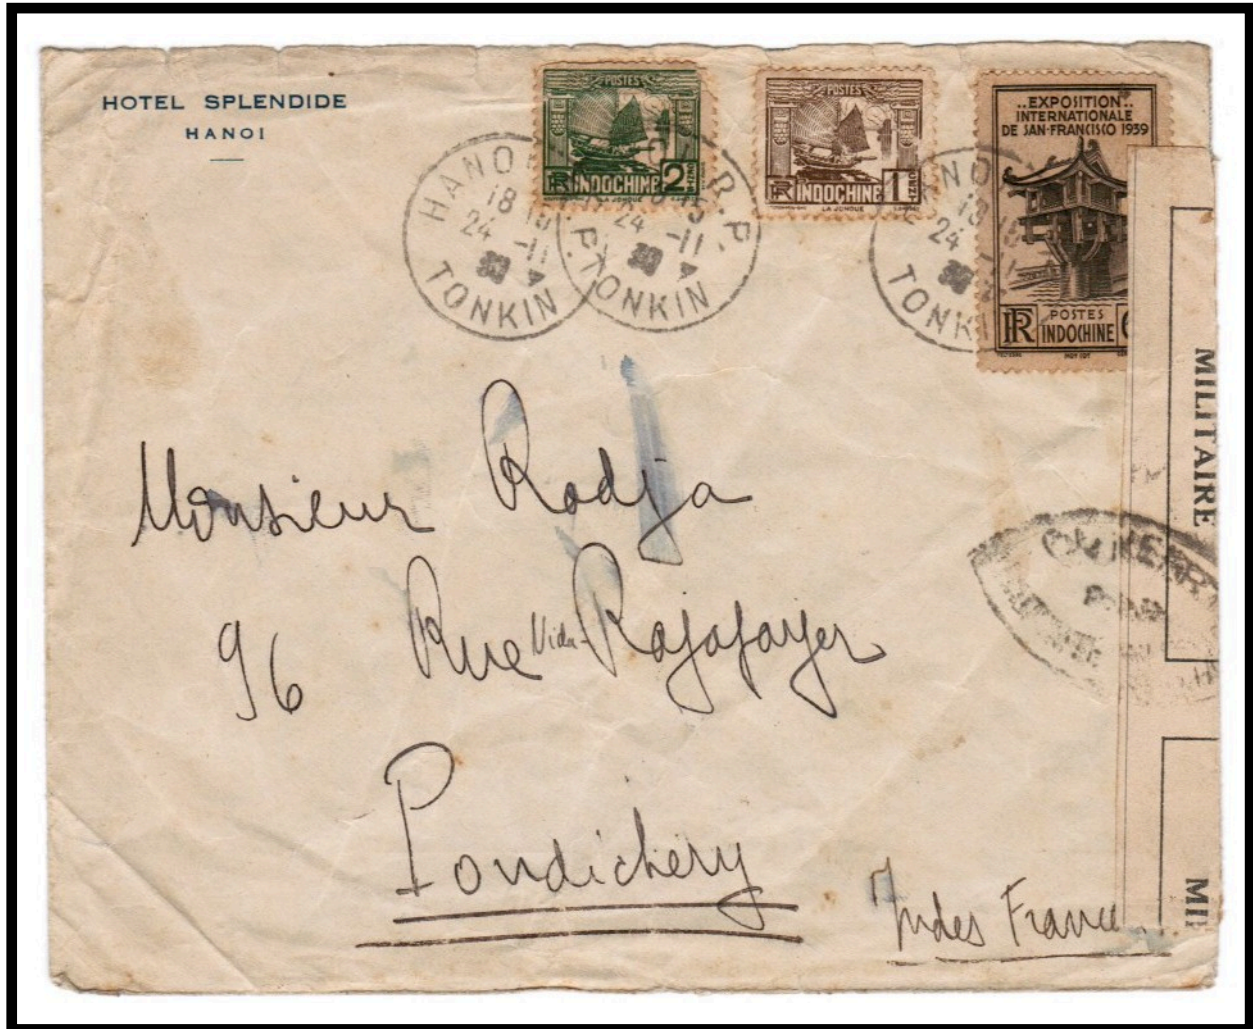 HOTEL SPLENDIDE
HANOI
POSTES
2
RF INDOCHINE
LA JONQUE
POSTES
1
RF INDOCHINE
LA JONQUE
..EXPOSITION..
INTERNATIONALE
DE SAN-FRANCISCO 1939
RF POSTES
INDOCHINE
HANOI
18
24 -11
TONKIN
HANOI R.P.
24 -11
TONKIN
HANOI
18
24
TONKIN
MILITAIRE
Monsieur Radja
96 Rue Vidu- Rajafayer
Pondichery
Indes France